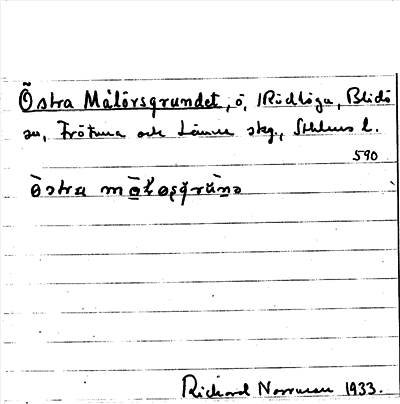 Östra Målörsgrundet, ö, Rödlöga, Blidö
sn, Frötuna och Länna skg., Sthlms l.
590
östra
Richard Norrman 1933.